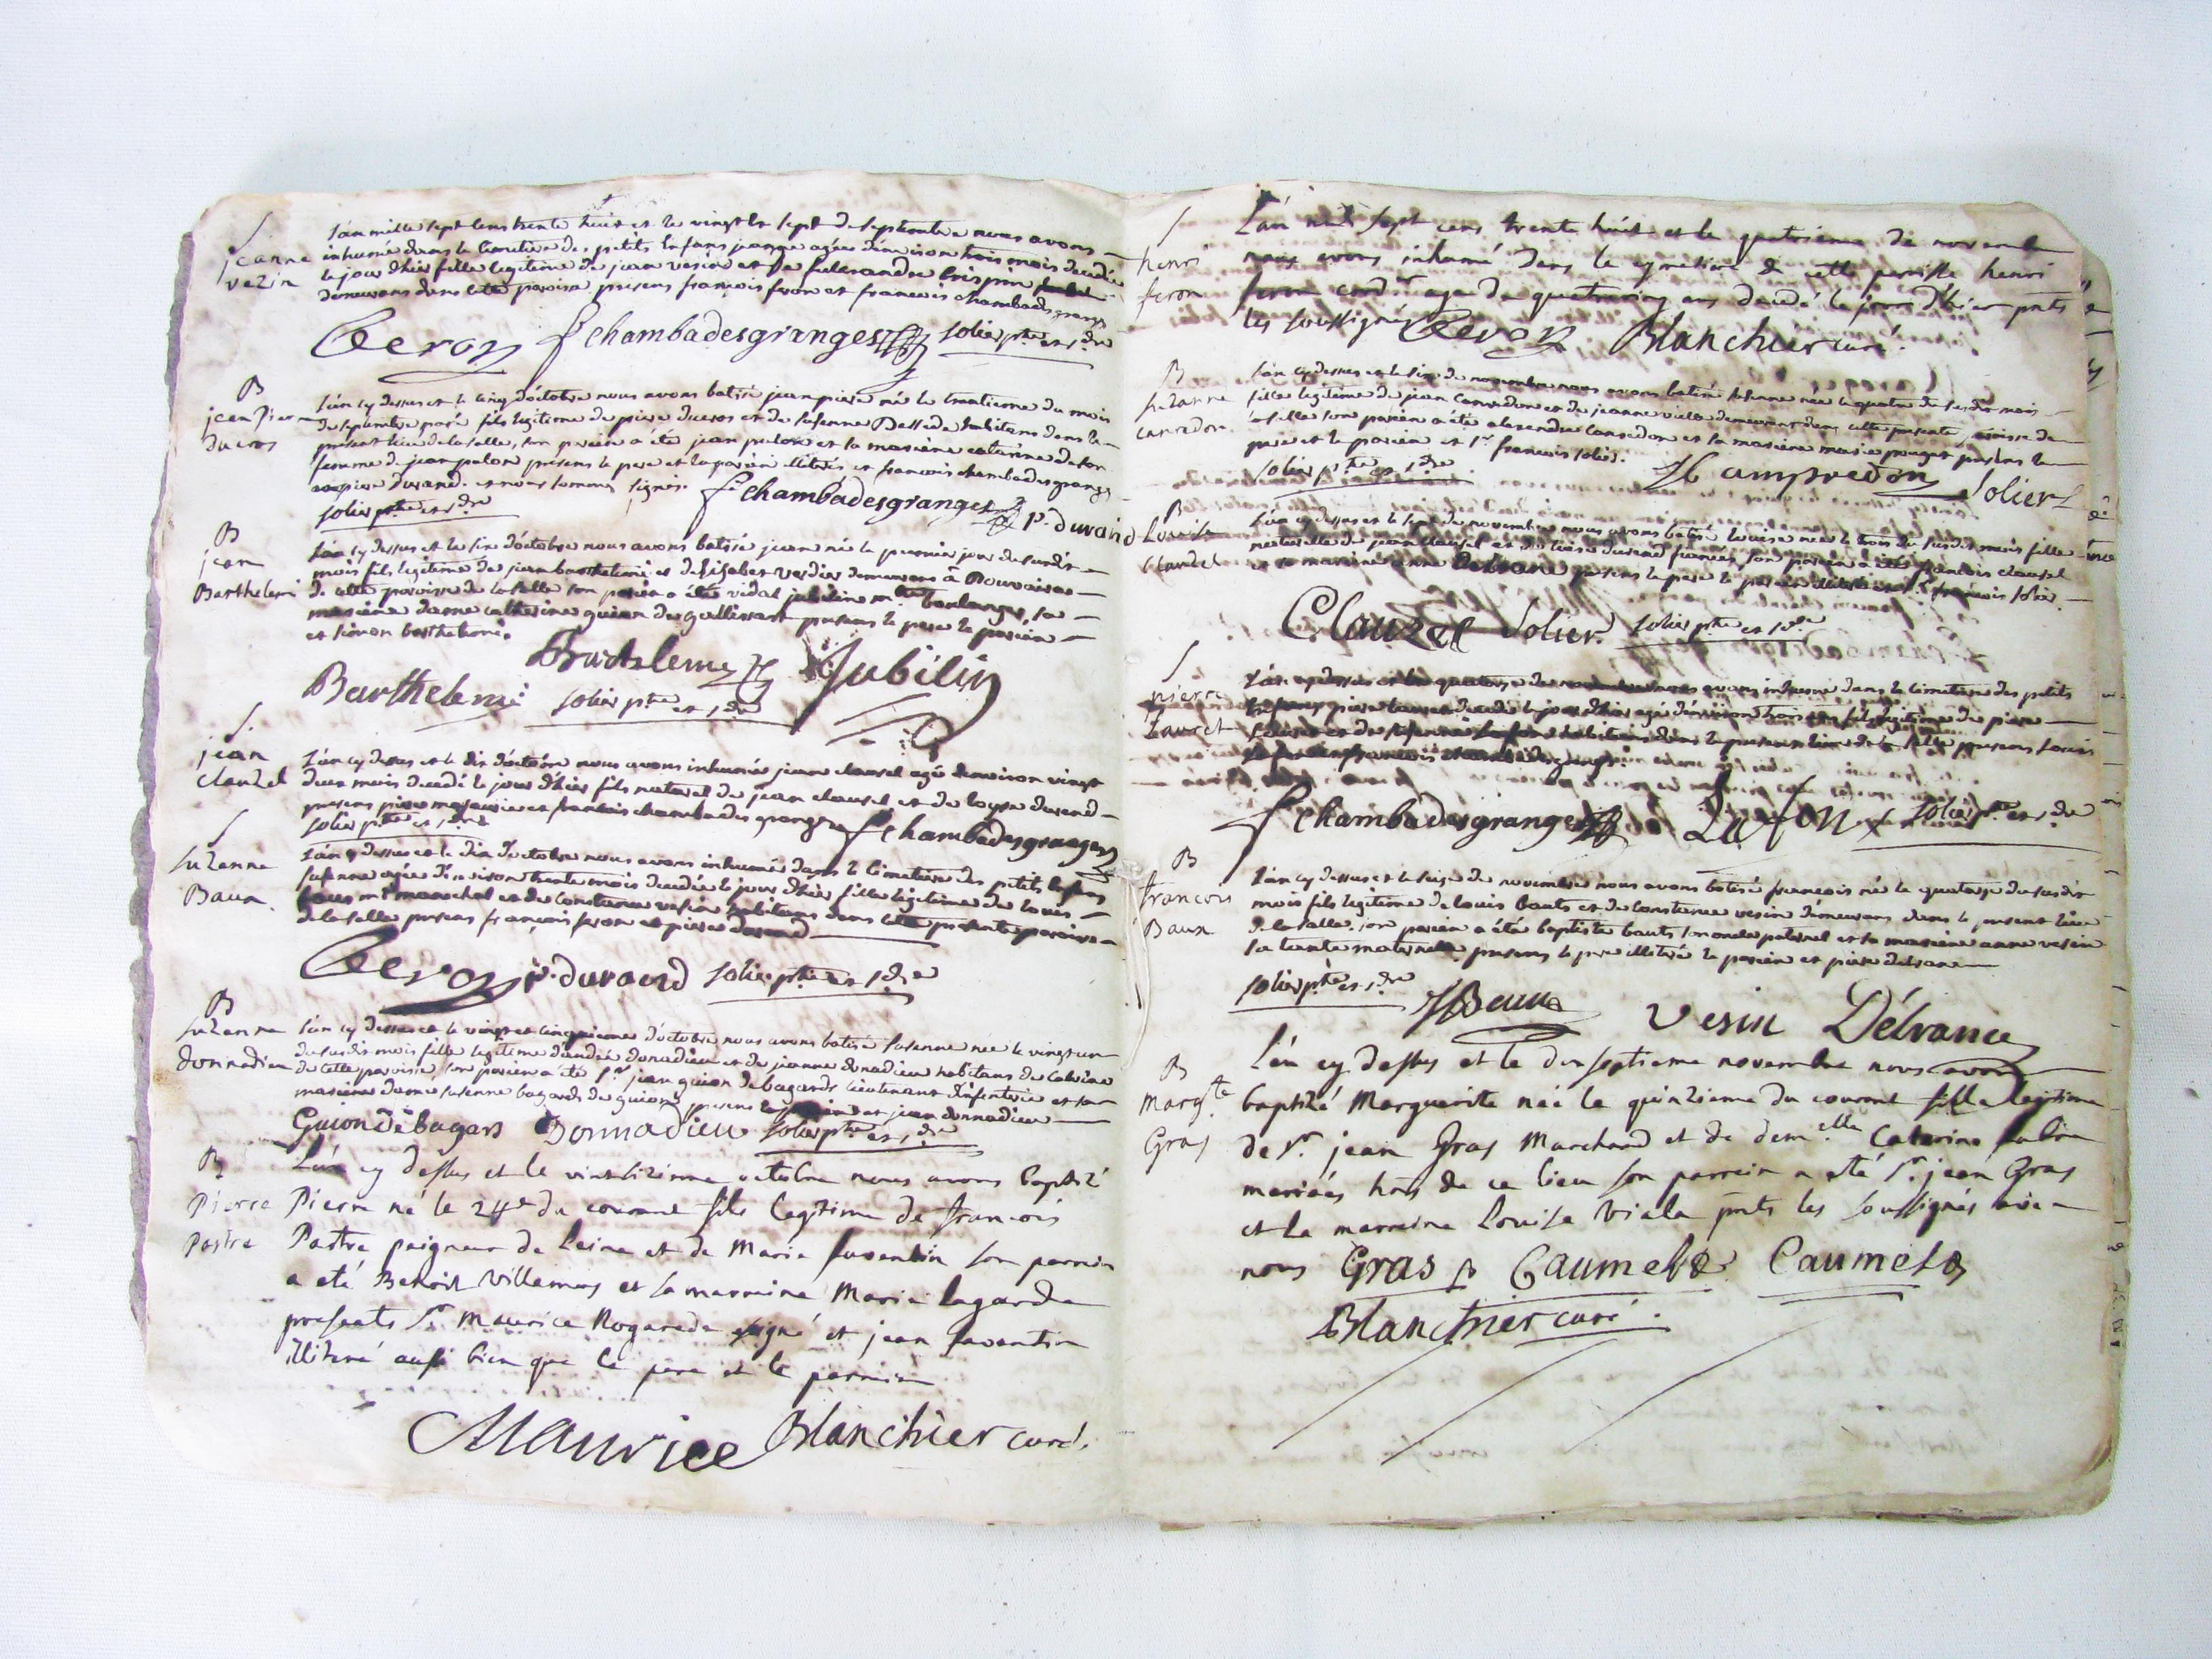 S
jeanne
vezin
L'an mille sept cens trente huit et le vingt et sept de septembre nous avons
inhumé dans le cimetiere des petits enfans jeanne agée d'environ trois mois decedée
le jour d'hier fille legitime de jean vesin et de
demeurans dans cette paroisse presens françois feron et françois chambadesgranges
Feron f chambadesgranges solier ptre et sdre
B
jean Pierre
Ducros
L'an cy dessus et le cinq d'octobre nous avons batisé jean piere né le trentieme du mois
de septembre passé fils legitime de piere ducros et de susenne Desside habitans dans le
present lieu de la salle, son parein a été jean pulon et sa mareine caterine
femme de jean pulon presens le pere et le parein illitérés et francois chambadesgranges
et piere durand. et nous sommes signés. f chambadesgranges P. durand
solier ptre et sdre
B
jean
Barthelemi
L'an cy dessus et le six d'octobre nous avons batisé jean né le premier jour du susdit
mois fils legitime de jean barthelemi et d'Elisabet verdier demeurans à
de cette paroisse de la salle son parein a été vidal jubilin me boulanger, sa
mareine dame catherine guion de presens le pere le parein
et simon barthelemi.
Barthelemi Jubilin
Barthelemi solier ptre et sdre
S
jean
clauzel
L'an cy dessus et le dix d'octobre nous avons inhumé jean clausel agé d'environ vingt
deux mois decedé le jour d'hier fils naturel de jean clausel et de loyse durand
presens piere et francois chambadesgranges f chambadesgranges
solier ptre et sdre
S
Suzanne
Baux
L'an cy dessus et le dix d'octobre nous avons inhumée dans le cimetiere des petits enfans
susenne agée d'environ trente mois decedée le jour d'hier fille legitime de louis
me marechal et de Constence vesin habitans dans cette presente paroisse
de la salle presens françois feron et piere durand
Feron P. durand solier ptre et sdre
B
Suzanne
donnadieu
L'an cy dessus et le vingt et cinquieme d'octobre nous avons batisé susenne née le vingt un
du susdit mois fille legitime d'andré donadieu et de jeanne donadieu habitans de
de cette paroisse, son parein a été Sr jean guion de bagards lieutenant d'infenterie et sa
mareine dame susenne bagards de guion presens le parein et jean donnadieu
Guion De bagars Donnadieu solier ptre et sdre
B
Pierre
Pastre
L'an cy dessus et le vintsizieme octobre nous avons baptizé
Pierre né le 24e du courant fils legitime de françois
Pastre peigneur de leine et de Marie saventin son parrin
a eté Benoit Villemus et sa marreine Marie lagarde
presents Sr Maurice Rogarede signé et jean saventin
illiteré aussi bien que le pere et le parrein
Maurice Blanchier curé.
S
henri
feron
L'an mil sept cens trente huit et le quatrieme de novembre
nous avons inhumé dans le cymetiere de cette parroisse henri
feron cardr agé de quatrevint ans decedé le jour d'hier pnts
les soussignés Feron Blanchier curé.
B
Suzanne
camredon
L'an cy dessus et le six de novembre nous avons batisé susenne née le quatre du susdit mois
fille legitime de jean Camredon et de jeanne vielle demeurans dans cette presente paroisse de
la salle son parein a été alexandre camredon et sa mareine marie pouget presens le
pere et le parein et Sr francois solier.
solier ptre et sdre Campredon Solier
B
Louise
Clauzel
L'an cy dessus et le sept de novembre nous avons batisé louise née le trois du susdit mois fille
naturelle de jean clausel et de loise durand son parein a été francois clausel
et sa mareine anne Delrane presens le pere le parein illitéré et Sr françois solier
Clauzel Solier. solier ptre et sdre
S
pierre
Lauret
L'an cy dessus et le quatorze de novembre nous avons inhumé dans le cimetiere des petits
enfans piere lauret decedé le jour d'hier agé d'environ trois ans fils legitime de piere
lauret et de susenne habitans dans le present lieu de la salle presens louis
lafon et francois chambadesgranges.
f chambadesgranges Lafon solier ptre et sdre
B
francois
Baux
L'an cy dessus et le seize de novembre nous avons batisé françois né le quatorze du susdit
mois fils legitime de louis bauts et de constence vesin demeurans dans le present lieu
de la salle. son parein a été baptiste bauts son oncle paternel et sa mareine anne vesin
sa tente maternelle presens le pere illitéré le parein et piere delrane
solier ptre et sdre JBaux Vesin Délranc
B
Margte
Gras
L'an cy dessus et le dix septieme novembre nous avons
baptizé Marguerite née le quinzieme du courant fille legitime
de Sr jean Gras Marchand et de demelle Caterine
mariés hors de ce lieu son parrein a eté Sr jean Gras
et la marreine Louise Viala pnts les soussignés avec
nous Gras Caumel Caumel
Blanchier curé.